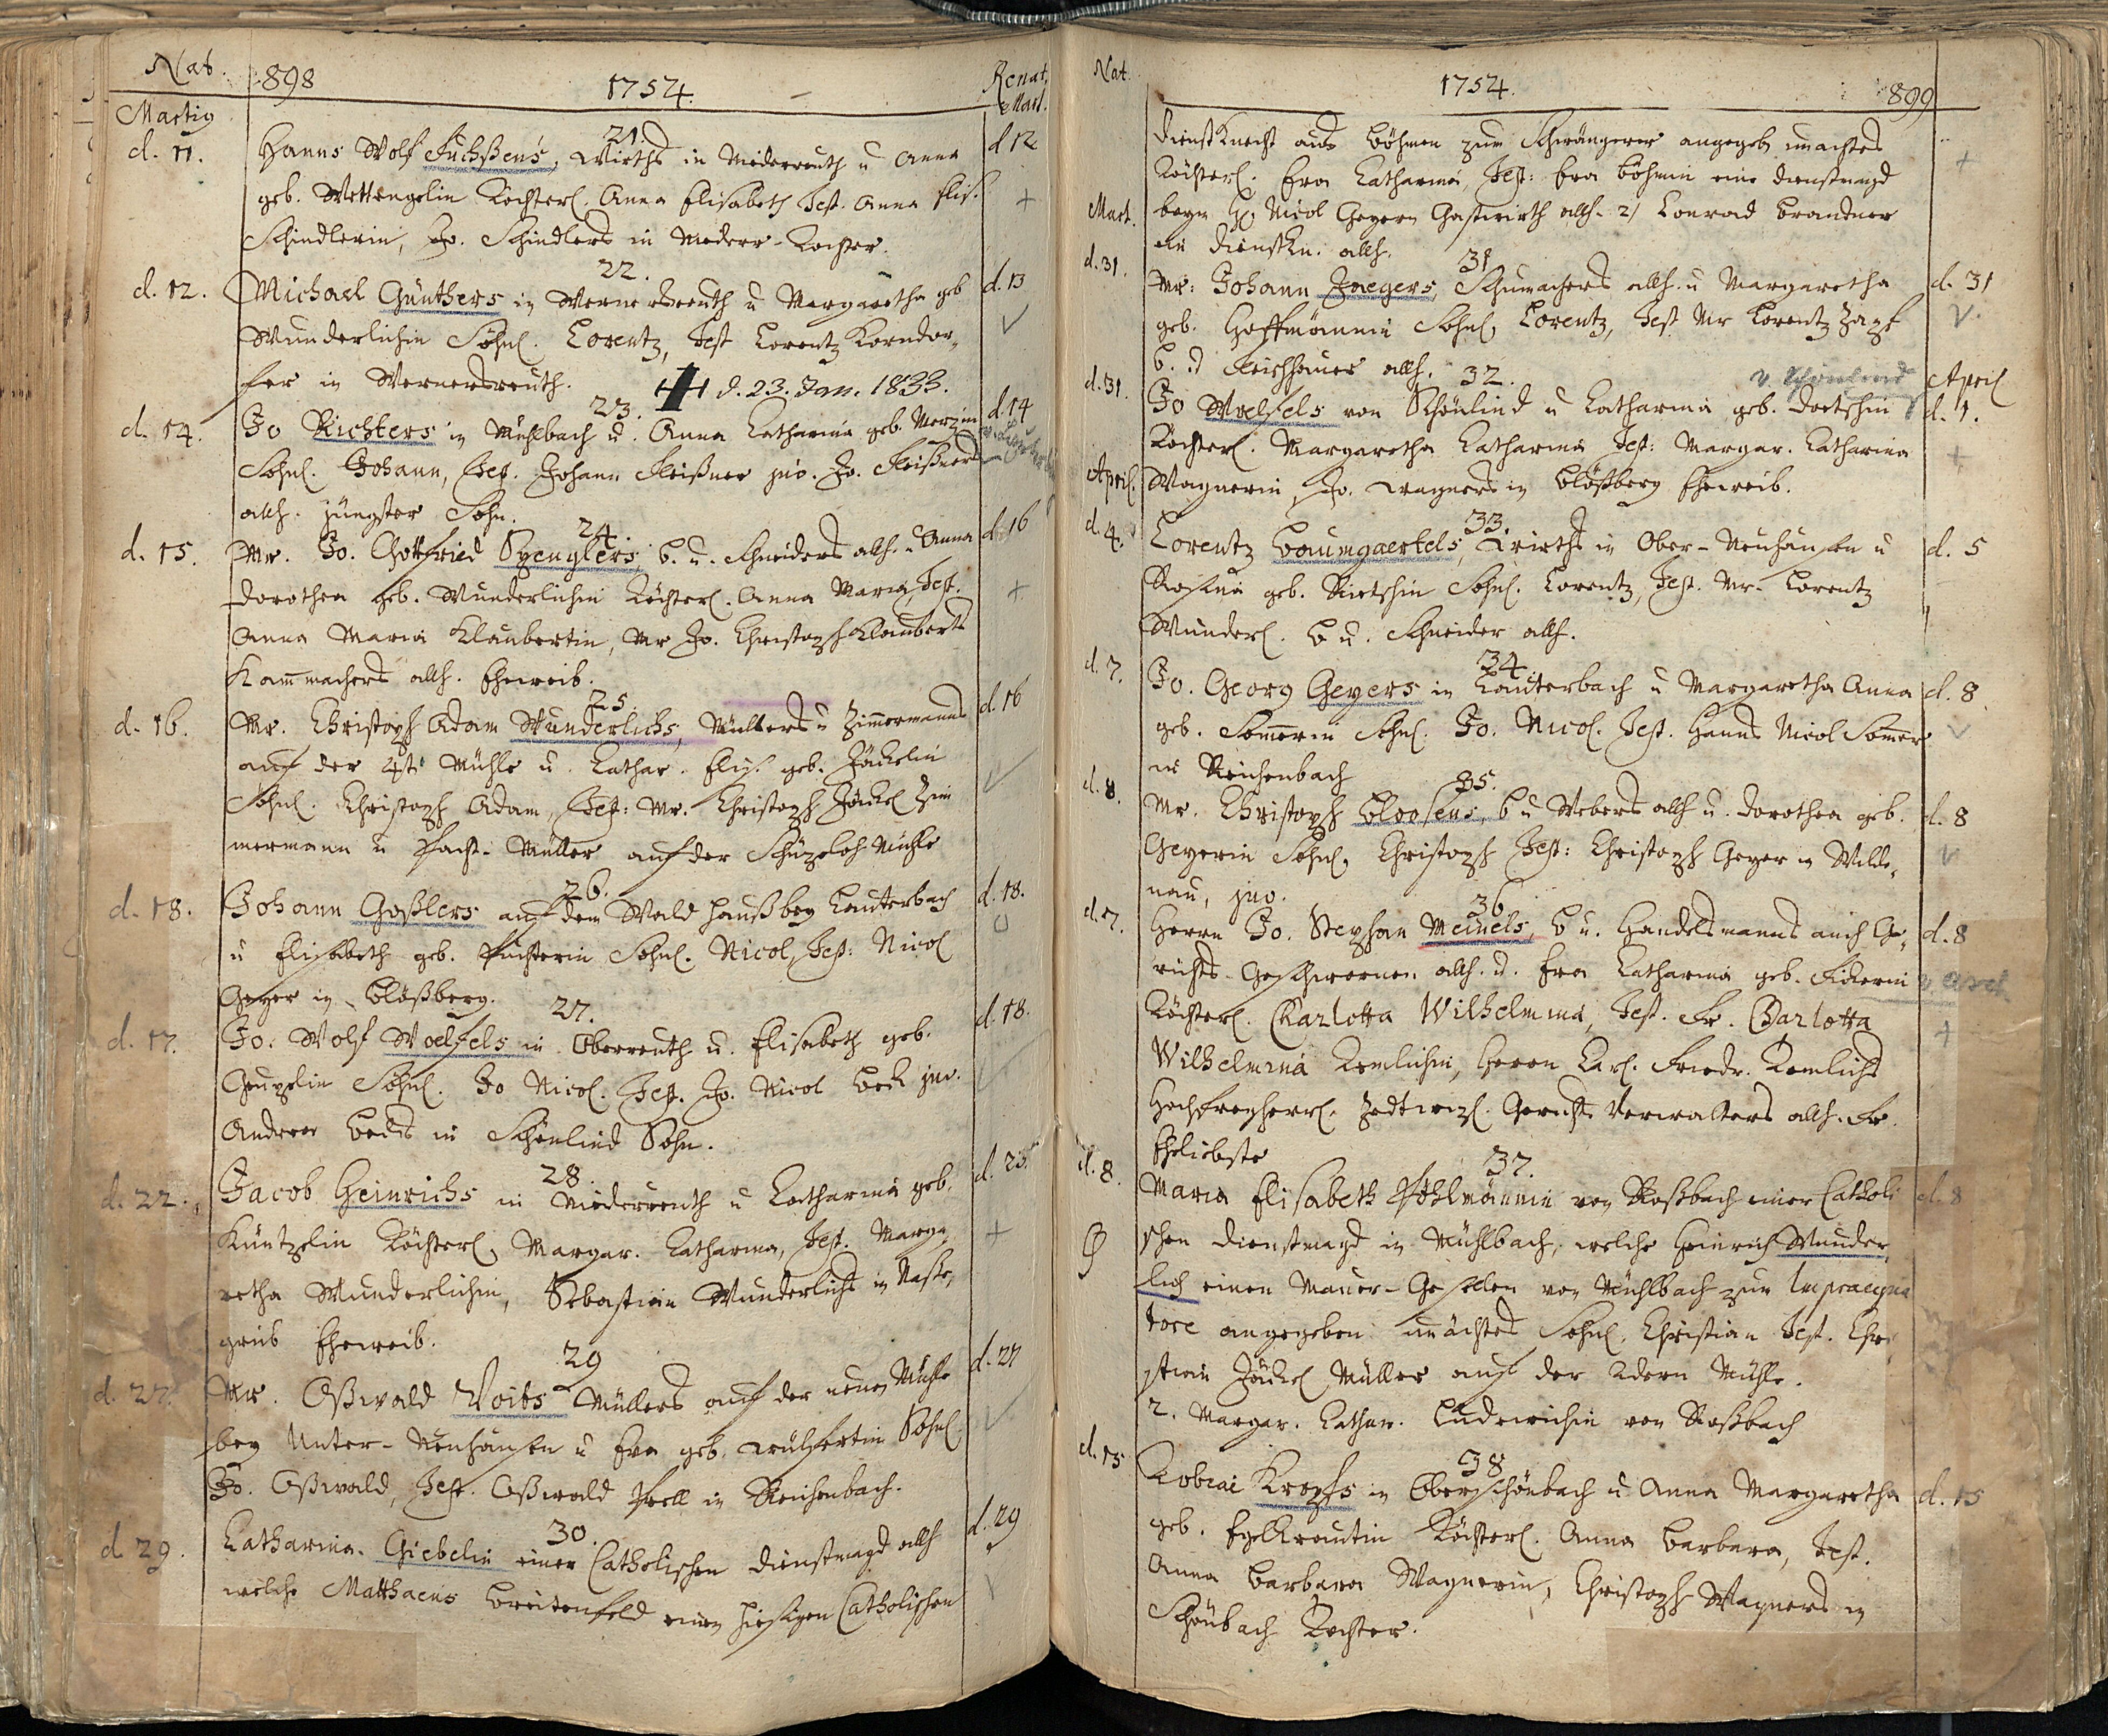 Nat. 898 1754. Renat.
Martij Mart.
21.
d. 11. Hanns Wolf Fuchßens, Wirths in Niederreuth u Anna d 12
geb. Wettengelin Töchterl. Anna Elisabeth Test. Anna Elis. +
Schindlerin, Jo. Schindlers in Niederr. Tochter.
22.
d. 12. Michael Günthers in Wernersreuth u Margaretha geb d. 13
Wunderlichin Söhnl. Lorentz, Test Lorentz Korndor-
fer in Wernersreuth. d. 23. Jan. 1833.
23.
d. 14. Jo Richters in Mühlbach u. Anna Catharina geb. Merzin d. 14
Söhnl. Johann, Test. Johann Fleißner juv. Jo. Fleißners
allh. jüngster Sohn.
24.
d. 15. Mr. Jo. Gottfried Spenglers, B. u. Schneiders allh. u Anna d. 16
Dorothea geb. Wunderlichin Töchterl. Anna Maria, Test. +
Anna Maria Klaubertin, Mr Jo. Christoph Klauberts
Kam̄machers allh. Eheweib.
25.
d. 16. Mr. Christoph Adam Wunderlichs, Müllers u Zim̄ermanns d. 16
auf der 4t. Mühle u. Cathar. Elis. geb. Jäckelin
Söhnl. Christoph Adam, Test: Mr. Christoph Jäckel Zim
mermann u Pacht-Müller auf der Schüzeloh Mühle
26.
d. 18. Johann Goßlers auf dem Wald Hauß bey Lauterbach d. 18.
u Elisabeth geb. Künsterin Söhnl. Nicol, Test: Nicol
Geyer in Bloßberg.
27.
d. 17. Jo. Wolf Woelfels in Oberreuth u. Elisabeth geb. d. 18.
Geupelin Söhnl. Jo Nicol. Test. Jo. Nicol Beck juv.
Andreas Becks in Schönlind Sohn.
28.
d. 22. Jacob Heinrichs in Niederreuth u Catharina geb. d. 23.
Küntzelin Töchterl, Margar. Catharina, Test. Marga +
retha Wunderlichin, Sebastian Wunderlichs in Naße,
grub Eheweib.
29
d. 27. Mr. Oßwald Voits Müllers auf der neuen Mühle d. 27
bey Unter-Neuhausen u Eva geb. Wülfertin Söhnl.
Jo. Oßwald, Test. Oßwald Prell in Reichenbach.
30.
d. 29. Catharina Giebelin einer Catholischen Dienstmagd allh d. 29
welche Matthaeus Breitenfeld einen hiesigen Catholischen
Nat. 1754. 899
Dienstknecht aus Böhmen zum Schwängerer angegeb, unächtes
Töchterl. Eva Catharina, Test: Eva Böhmin eine Dienstmagd +
Mart. beym H. Nicol Geyern Gastwirth allh. 2/ Conrad Brandner
ein Dienstkn. allh.
31
d. 31. Mr: Johann Jaegers, Schumachers allh. u Margaretha d. 31
geb. Hoffmännin Söhnl, Lorentz, Test Mr Lorentz Zapf
B. u Fleischhauer allh.
32. v. Schönlind April
d. 31. Jo Woelfels von Schönlind u Catharina geb. Dortschin d. 1.
Töchterl. Margaretha Catharina Test: Margar. Catharina +
April. Wagnerin, Jo. Wagners in Bloßberg Eheweib.
33.
d. 4. Lorentz Baumgaertels, Wirths in Ober-Neuhausen u d. 5
Rosina geb. Rietschin Söhnl. Lorentz, Test. Mr. Lorentz
Wunderl. B u. Schneider allh.
34.
d. 7. Jo. Georg Geyers in Lauterbach u Margaretha Anna d. 8.
geb. Som̄erin Söhnl. Jo. Nicol. Test. Hanns Nicol Som̄er
in Reichenbach
35.
d. 8. Mr. Christoph Bloosens, B u Webers allh u. Dorothea geb. d. 8
Geyerin Söhnl, Christoph Test: Christoph Geyer in Wilde,
nau, juv.
36
d. 7. Herrn Jo. Stephan Meinels, B u. Handelsmanns auch Ge, d. 8
richts Geschwornen allh. u. Eva Catharina geb. Fickerin
Töchterl. Charlotta Wilhelmina, Test. Fr. Charlotta +
Wilhelmina Kemlichin, Herrn Carl. Friedr. Kemlichs
Hochfreyherrl. Zedtwizl. Gerichts Verwalters allh. Fr.
Eheliebste
37.
d. 8. Maria Elisabeth Pöhlmännin von Roßbach einer Catholi d. 8
schen Dienstmagd in Mühlbach, welche Heinrich Wunder,
lich einen Maurer-Gesellen von Mühlbach zum Impraegna
tore angegeben unächtes Söhnl. Christian Test. Chri
stian Jäckel Müller auf der Mühle.
2. Margar. Cathar. Ludewichin von Roßbach
38
d. 15 Tobiae Kropfs in Oberschönbach u Anna Margaretha d. 15
geb. Egelkrautin Töchterl. Anna Barbara, Test.
Anna Barbara Wagnerin, Christoph Wagners in
Schönbach Tochter.